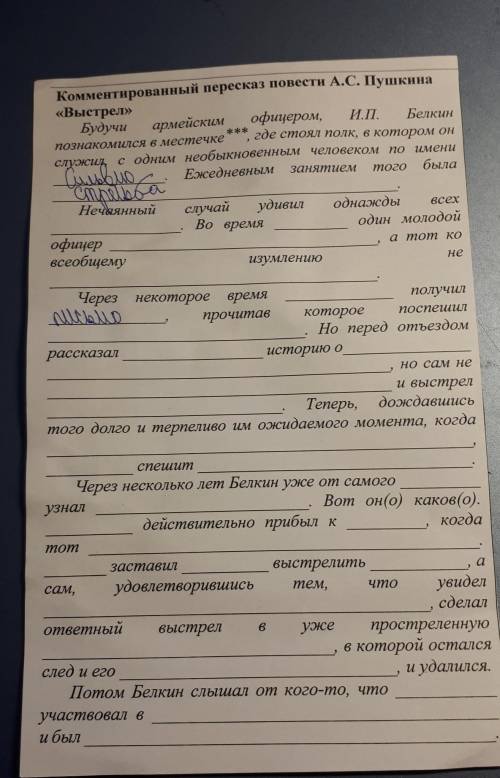 Комментированный пересказ повести А.С. Пушкина
«Выстрел»
Будучи армейским офицером, И.П. Белкин
познакомился в местечке***, где стоял полк, в котором он
служил, с одним необыкновенным человеком по имени
Сильвио. Ежедневным занятием того была
стрельба.
Нечаянный случай удивил однажды всех
____________. Во время ____________ один молодой
офицер ____________, а тот ко
всеобщему изумлению не
____________.
Через некоторое время ____________ получил
письмо, прочитав которое поспешил
____________. Но перед отъездом
рассказал ____________ историю о ____________
____________, но сам не
____________ и выстрел
____________. Теперь, дождавшись
того долго и терпеливо им ожидаемого момента, когда
____________,
____________ спешит ____________.
Через несколько лет Белкин уже от самого ____________
узнал ____________. Вот он(о) каков(о).
____________ действительно прибыл к ____________, когда
тот ____________.
____________ заставил ____________ выстрелить ____________, а
сам, удовлетворившись тем, что увидел
____________, сделал
ответный выстрел в уже простреленную
____________, в которой остался
след и его ____________, и удалился.
Потом Белкин слышал от кого-то, что ____________
участвовал в ____________
и был ____________.